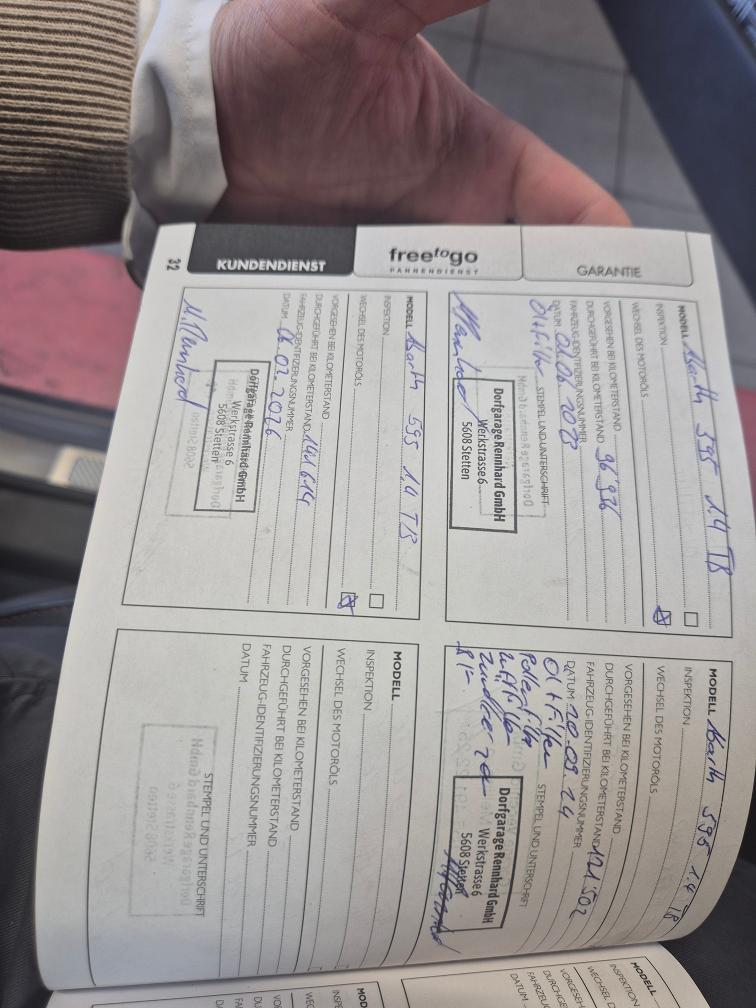 GARANTIE
freetogo
PANNENDIENST
KUNDENDIENST
32
MODELL Abarth 595 1.4 TB
INSPEKTION
WECHSEL DES MOTORÖLS
VORGESEHEN BEI KILOMETERSTAND
DURCHGEFÜHRT BEI KILOMETERSTAND 96'936
FAHRZEUG-IDENTIFIZIERUNGSNUMMER
DATUM
STEMPEL UND UNTERSCHRIFT
Dorfgarage Rennhard GmbH
Werkstrasse 6
5608 Stetten
MODELL Abarth 595 1.4 TB
INSPEKTION
WECHSEL DES MOTORÖLS
VORGESEHEN BEI KILOMETERSTAND
DURCHGEFÜHRT BEI KILOMETERSTAND
FAHRZEUG-IDENTIFIZIERUNGSNUMMER
DATUM 20.09.24
Ölfilter
STEMPEL UND UNTERSCHRIFT
Dorfgarage Rennhard GmbH
Werkstrasse 6
5608 Stetten
MODELL Abarth 595 1,4 TB
INSPEKTION
WECHSEL DES MOTORÖLS
VORGESEHEN BEI KILOMETERSTAND
DURCHGEFÜHRT BEI KILOMETERSTAND 141'614
FAHRZEUG-IDENTIFIZIERUNGSNUMMER
DATUM 06.02.2026
Dorfgarage Rennhard GmbH
Werkstrasse 6
5608 Stetten
MODELL
INSPEKTION
WECHSEL DES MOTORÖLS
VORGESEHEN BEI KILOMETERSTAND
DURCHGEFÜHRT BEI KILOMETERSTAND
FAHRZEUG-IDENTIFIZIERUNGSNUMMER
DATUM
STEMPEL UND UNTERSCHRIFT
MODELL
INSPEKTION
MODELL